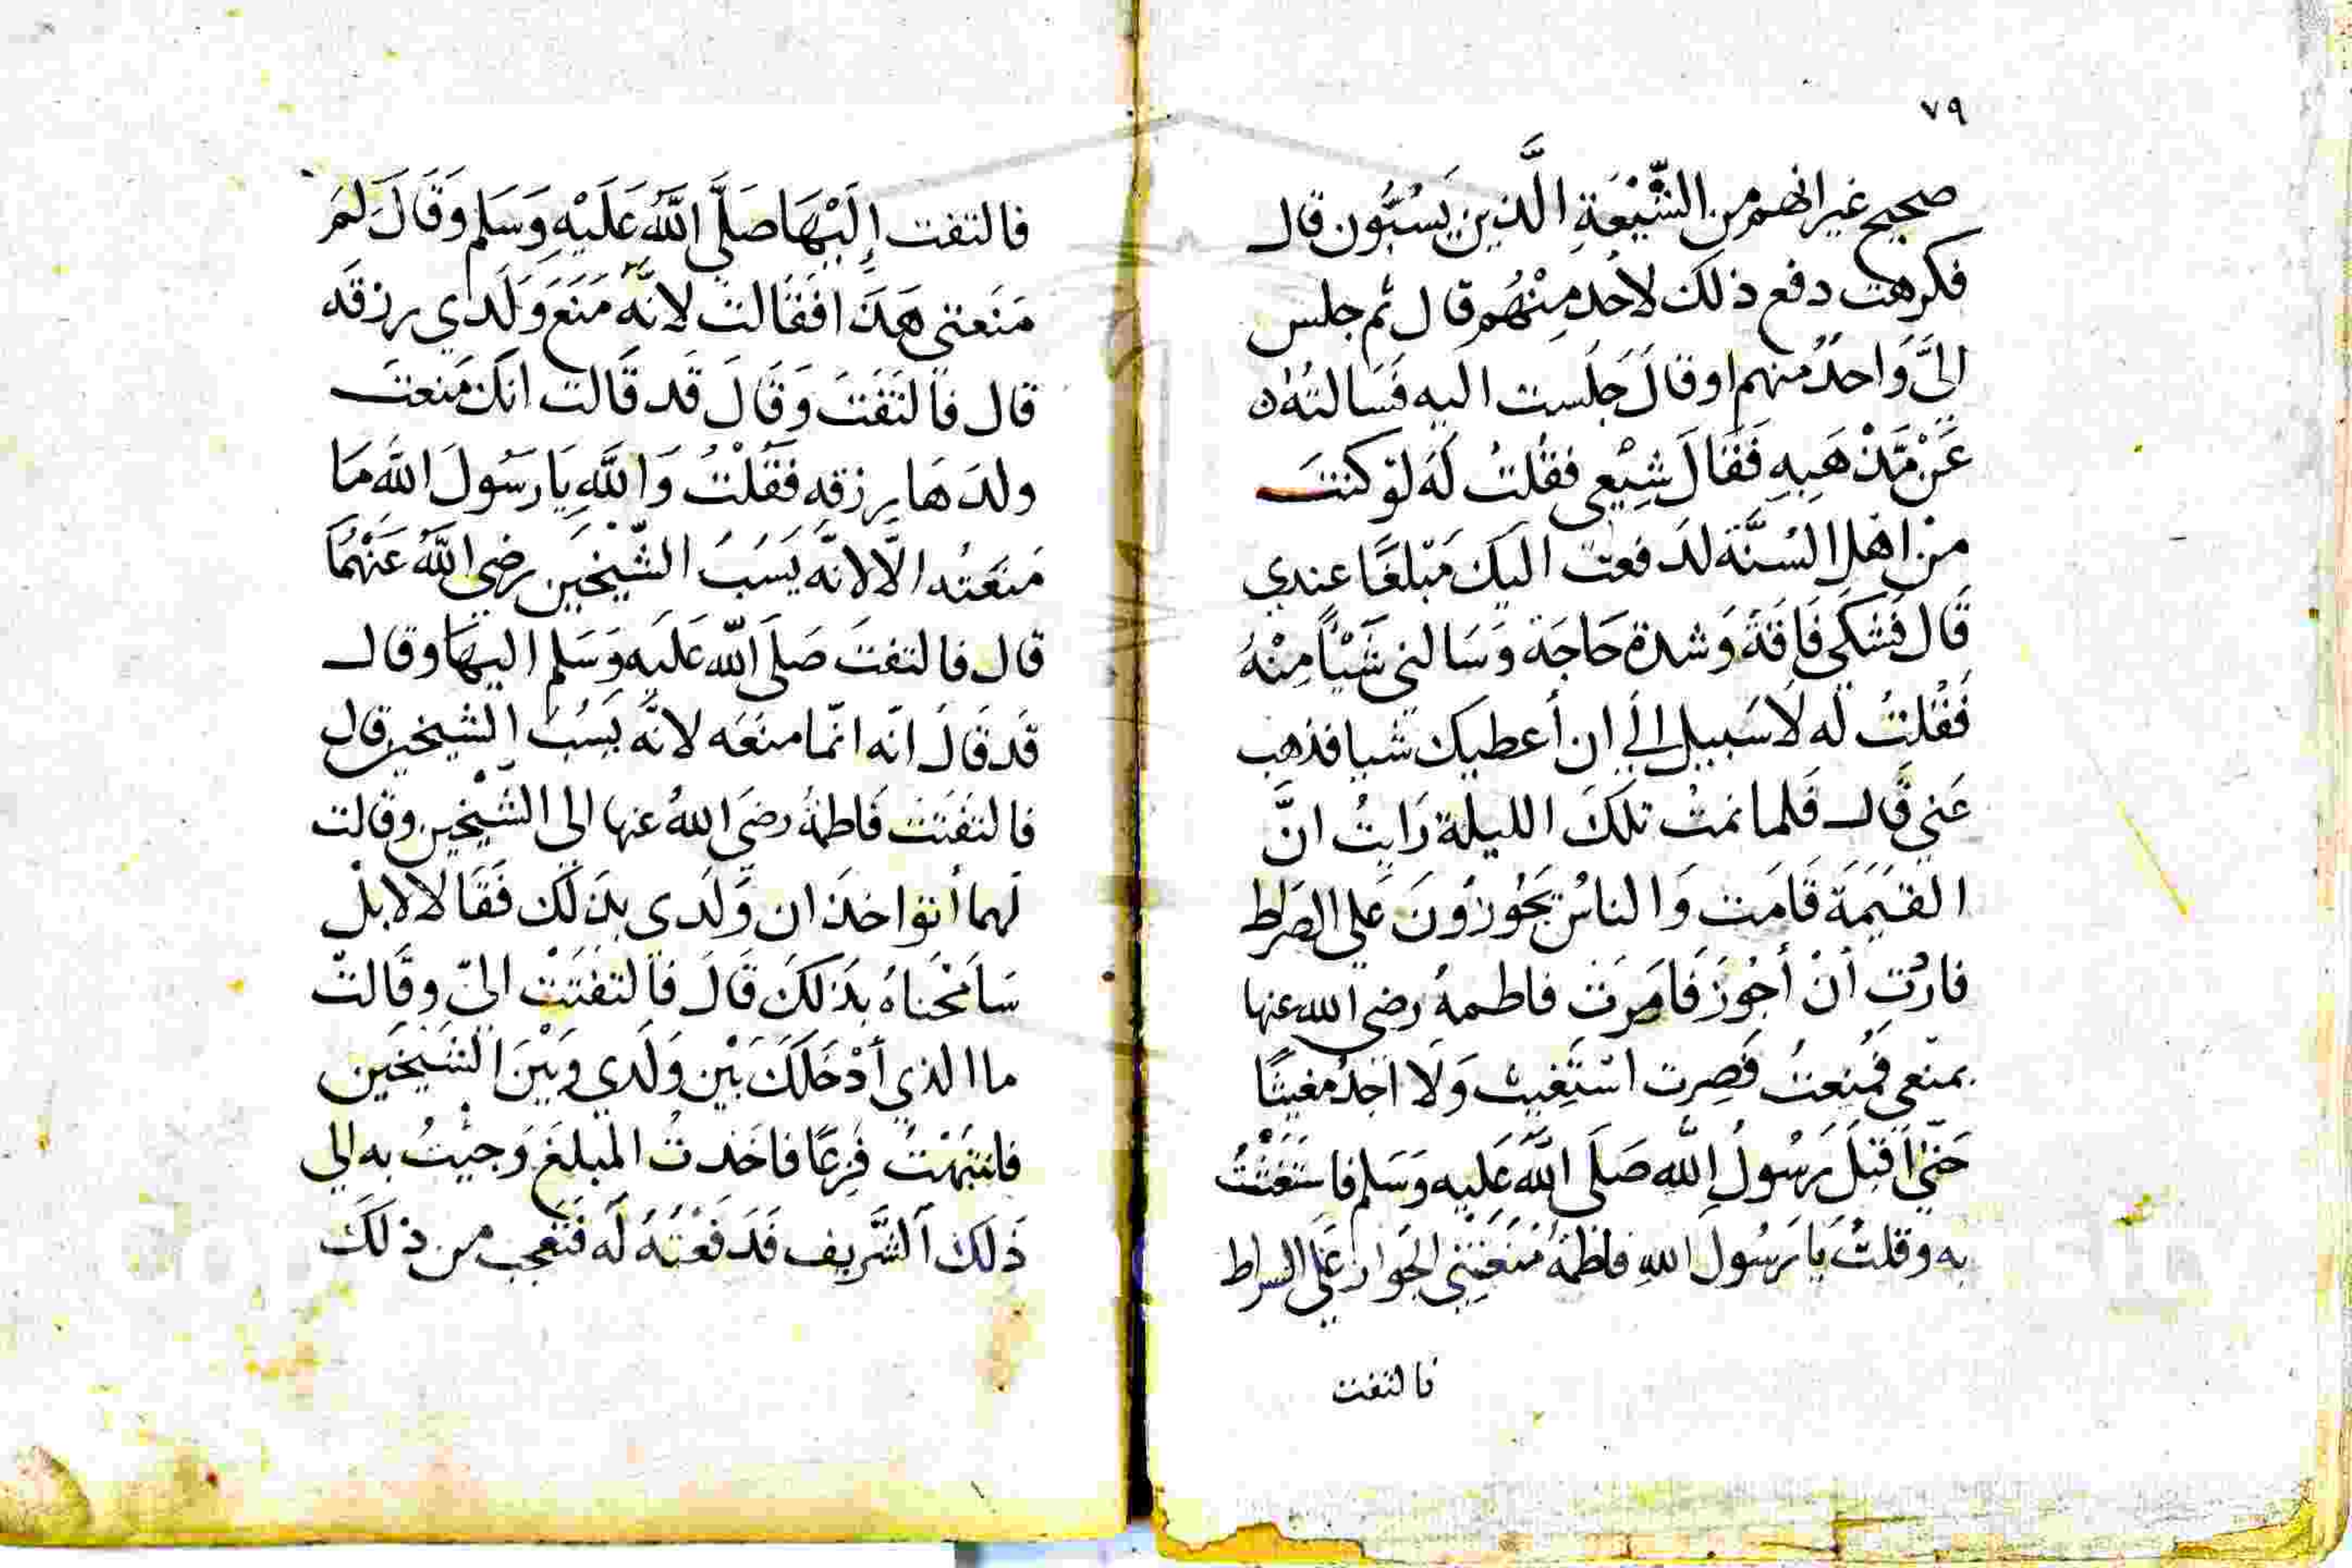 ٧٩
صحيح غير انهم من الشِّيْعَةِ الَّذين يَسُبُّون قال
فكرهت دفع ذلك لاحد مِنْهُم قال ثم جلس
اليَّ وَاحدٌ منهم او قالَ جَلَست اليه فَسَالتُه
عَنْ مَّذْهَبِهِ فَقَالَ شِيْعي فقُلتُ لَه لوْ كنتَ
منْ اهْل السُنَّة لدَفعت اليكَ مَبْلغًا عندي
قَال فَشكى فَاقَةً وَشدة حَاجَة وَسَالني شَيْأً مِنْهُ
فَقُلتُ لَه لَا سَبيل الَي ان أعطيك شيا فذهب
عَني قَال فَلما نمتُ تلكَ الليلة رَايتُ انَّ
القيَمَة قَامَت وَالناسُ يَجُوزُونَ عَلى الصَراط
فارُت أنْ أجُوْزَ فَامَرَت فاطمةُ رضى الله عنها
بمنعي فمُنِعتُ فَصِرت اسْتَغِيث وَلَا اَجدُ مغيثًا
حَتّى اَقبَلَ رَسُولُ اللهِ صَلَى اللَّه عَلَيه وَسَلم فاستَغَثْتُ
به وقلتُ يَا رَسُولَ اللهِ فاطمَةُ مَنَعَتِنى الجَوازَ عَلَى السراط
فالتفت
فالتفت إِلَيْهَا صَلَّى اللَّهُ عَلَيْهِ وَسَلم وَقَالَ لِمَ
مَنَعتي هَذَا فَقَالت لانَّه مَنَعَ وَلَدي رزقَه
قال فَالتَفَتَ وَقَالَ قَد قَالت انكَ مَنعتَ
ولدَهَا رزقه فَقُلْتُ وَاللَّهِ يَا رَسُولَ الله مَا
مَنَعْتُه الَّا لانَّه يَسَبُ الشَّيْخَين رضي اللَّهُ عَنْهُمَا
قال فالتفتَ صَلَى اللَّه عَلَيه وَسَلم اليهَا وقال
قَد قَالَ انّه انّما منَعَه لانَّه يَسُبُ الشيخين قال
فالتفَتَت فَاطمةُ رضيَ اللهُ عنها الى الشَيْخين وقالت
لَهما أتؤاخذان وَلَدى بذَلك فَقَالَا لا بلْ
سَامَحْنَاهُ بذَلكَ قَالَ فَالتفَتَتْ اليّ وقَالتْ
ما الذي أدْخَلَكَ بَيْن وَلَدي وَبَيْنَ الشَيْخَين
فانتبَهْتُ فَزِعًا فاخَذتُ المَبلغَ وَجيْتُ به الي
ذَلكَ الشَّريف فَدَفَعْتُهُ لَه فَتَعجب من ذلكَ